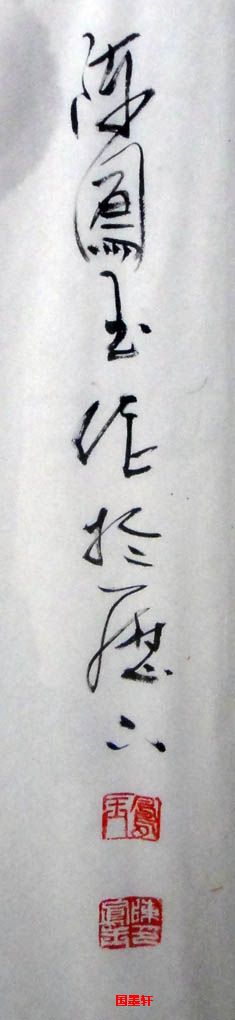 陈鳳玉作於歷下
鳳玉
国墨轩